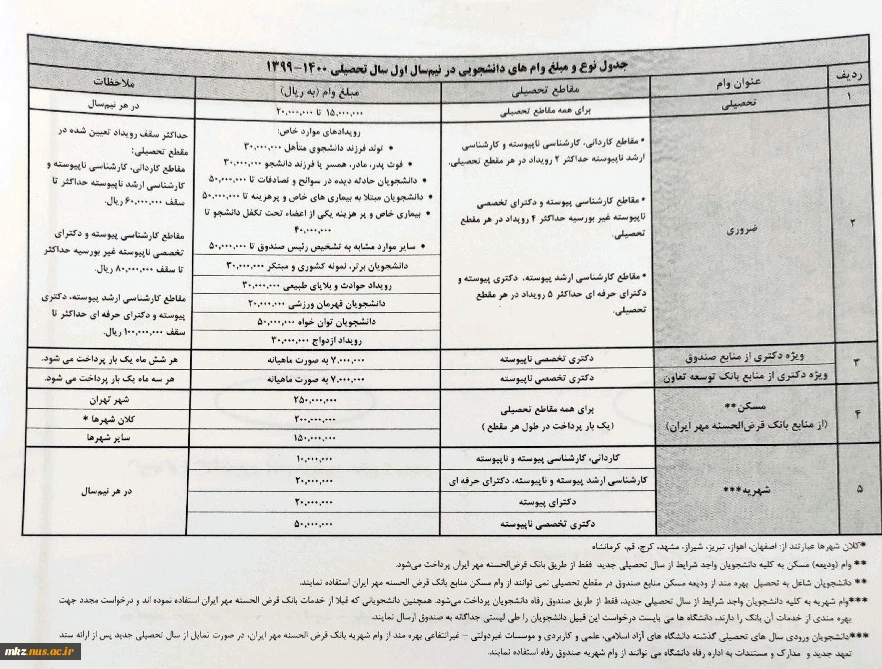 جدول نوع و مبلغ وام های دانشجویی در نیم‌سال اول سال تحصیلی ۱۴۰۰-۱۳۹۹
ردیف
عنوان وام
مقاطع تحصیلی
مبلغ وام (به ریال)
ملاحظات
۱
تحصیلی
برای همه مقاطع تحصیلی
۱۵,۰۰۰,۰۰۰ تا ۲۰,۰۰۰,۰۰۰
در هر نیم‌سال
۲
ضروری
* مقاطع کاردانی، کارشناسی ناپیوسته و کارشناسی
ارشد ناپیوسته حداکثر ۲ رویداد در هر مقطع تحصیلی.
* مقاطع کارشناسی پیوسته و دکترای تخصصی
ناپیوسته غیر بورسیه حداکثر ۴ رویداد در هر مقطع
تحصیلی.
* مقاطع کارشناسی ارشد پیوسته، دکتری پیوسته و
دکترای حرفه ای حداکثر ۵ رویداد در هر مقطع
تحصیلی.
رویدادهای موارد خاص:
• تولد فرزند دانشجوی متأهل ۳۰,۰۰۰,۰۰۰
• فوت پدر، مادر، همسر یا فرزند دانشجو ۳۰,۰۰۰,۰۰۰
• دانشجویان حادثه دیده در سوانح و تصادفات تا ۵۰,۰۰۰,۰۰۰
• دانشجویان مبتلا به بیماری های خاص و پرهزینه تا ۵۰,۰۰۰,۰۰۰
• بیماری خاص و پر هزینه یکی از اعضاء تحت تکفل دانشجو تا
۴۰,۰۰۰,۰۰۰
• سایر موارد مشابه به تشخیص رئیس صندوق تا ۵۰,۰۰۰,۰۰۰
دانشجویان برتر، نمونه کشوری و مبتکر ۳۰,۰۰۰,۰۰۰
رویداد حوادث و بلایای طبیعی ۳۰,۰۰۰,۰۰۰
دانشجویان قهرمان ورزشی ۲۰,۰۰۰,۰۰۰
دانشجویان توان خواه ۵۰,۰۰۰,۰۰۰
رویداد ازدواج ۳۰,۰۰۰,۰۰۰
حداکثر سقف رویداد تعیین شده در
مقطع تحصیلی:
مقاطع کاردانی، کارشناسی ناپیوسته و
کارشناسی ارشد ناپیوسته حداکثر تا
سقف ۶۰,۰۰۰,۰۰۰ ریال.
مقاطع کارشناسی پیوسته و دکترای
تخصصی ناپیوسته غیر بورسیه حداکثر
تا سقف ۸۰,۰۰۰,۰۰۰ ریال.
مقاطع کارشناسی ارشد پیوسته، دکتری
پیوسته و دکترای حرفه ای حداکثر تا
سقف ۱۰۰,۰۰۰,۰۰۰ ریال.
۳
ویژه دکتری از منابع صندوق
دکتری تخصصی ناپیوسته
۷,۰۰۰,۰۰۰ به صورت ماهیانه
هر شش ماه یک بار پرداخت می شود.
ویژه دکتری از منابع بانک توسعه تعاون
دکتری تخصصی ناپیوسته
۷,۰۰۰,۰۰۰ به صورت ماهیانه
هر سه ماه یک بار پرداخت می شود.
۴
مسکن **
(از منابع بانک قرض‌الحسنه مهر ایران)
برای همه مقاطع تحصیلی
(یک بار پرداخت در طول هر مقطع )
۲۵۰,۰۰۰,۰۰۰
شهر تهران
۲۰۰,۰۰۰,۰۰۰
کلان شهرها *
۱۵۰,۰۰۰,۰۰۰
سایر شهرها
۵
شهریه***
کاردانی، کارشناسی پیوسته و ناپیوسته
۱۰,۰۰۰,۰۰۰
کارشناسی ارشد پیوسته و ناپیوسته، دکترای حرفه ای
۲۰,۰۰۰,۰۰۰
دکترای پیوسته
۲۰,۰۰۰,۰۰۰
دکتری تخصصی ناپیوسته
۵۰,۰۰۰,۰۰۰
در هر نیم‌سال
*کلان شهرها عبارتند از: اصفهان، اهواز، تبریز، شیراز، مشهد، کرج، قم، کرمانشاه
** وام (ودیعه) مسکن به کلیه دانشجویان واجد شرایط از سال تحصیلی جدید فقط از طریق بانک قرض‌الحسنه مهر ایران پرداخت می‌شود.
** دانشجویان شاغل به تحصیل بهره مند از ودیعه مسکن منابع صندوق در مقطع تحصیلی نمی توانند از وام مسکن منابع بانک قرض الحسنه مهر ایران استفاده نمایند.
***وام شهریه به کلیه دانشجویان واجد شرایط از سال تحصیلی جدید، فقط از طریق صندوق رفاه دانشجویان پرداخت می‌شود. همچنین دانشجویانی که قبلا از خدمات بانک قرض الحسنه مهر ایران استفاده نموده اند و درخواست مجدد جهت
بهره مندی از خدمات آن بانک را دارند، دانشگاه ها می بایست درخواست این قبیل دانشجویان را طی لیستی جداگانه به صندوق ارسال نمایند.
***دانشجویان ورودی سال های تحصیلی گذشته دانشگاه های آزاد اسلامی، علمی و کاربردی و موسسات غیردولتی – غیرانتفاعی بهره مند از وام شهریه بانک قرض الحسنه مهر ایران، در صورت تمایل از سال تحصیلی جدید پس از ارائه سند
تعهد جدید و مدارک و مستندات به اداره رفاه دانشگاه می توانند از وام شهریه صندوق رفاه استفاده نمایند.
mkz.nus.ac.ir